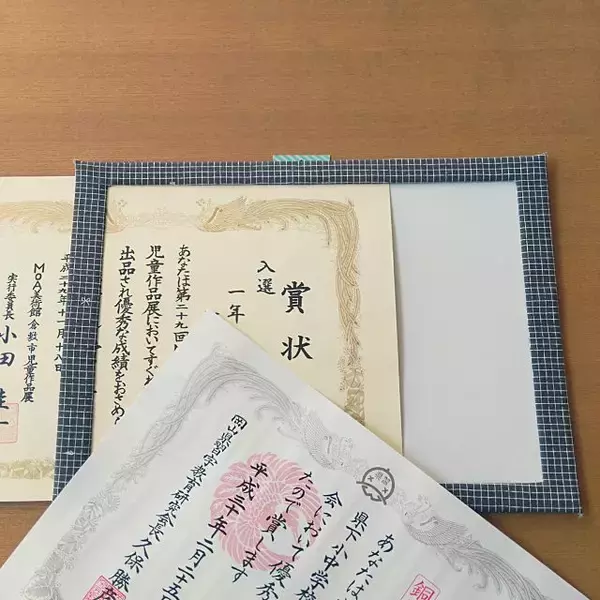 賞状
入選
一年
あなたは第二十九回
児童作品展においてすぐれ
出品され優秀な成績をおさめ
平成二十九年十一月十八日
MOA美術館 倉敷市児童作品展
実行委員長 小田
あなたは
県下小中学校
会において優秀
たので賞します
平成三十年二月二十五
岡山県習字教育研究会長 久保勝
銅